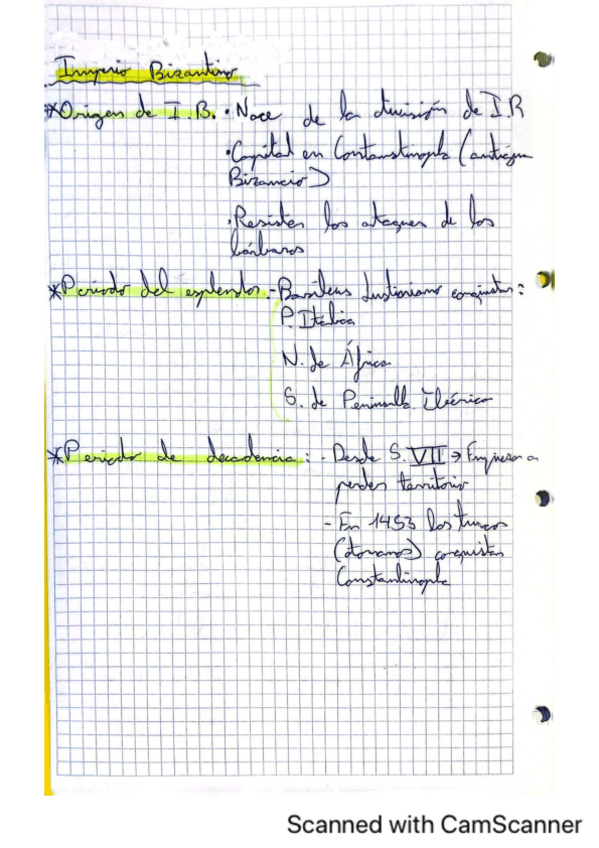 Imperio Bizantino
*Origen de I.B. • Nace de la division de I.R
• Capital en Contanstinopla (antigua
Bizancio)
• Resisten los ataques de los
bárbaros
*Periodo del esplendor.- Basileus Justiniano conquistan:
P. Italica
N. de África
S. de Peninsulla Ibérica
*Periodo de decadencia: - Desde S. VII → Empieza a
perder territorio
- En 1453 los turcos
(otomanos) conquistan
Constantinopla
Scanned with CamScanner